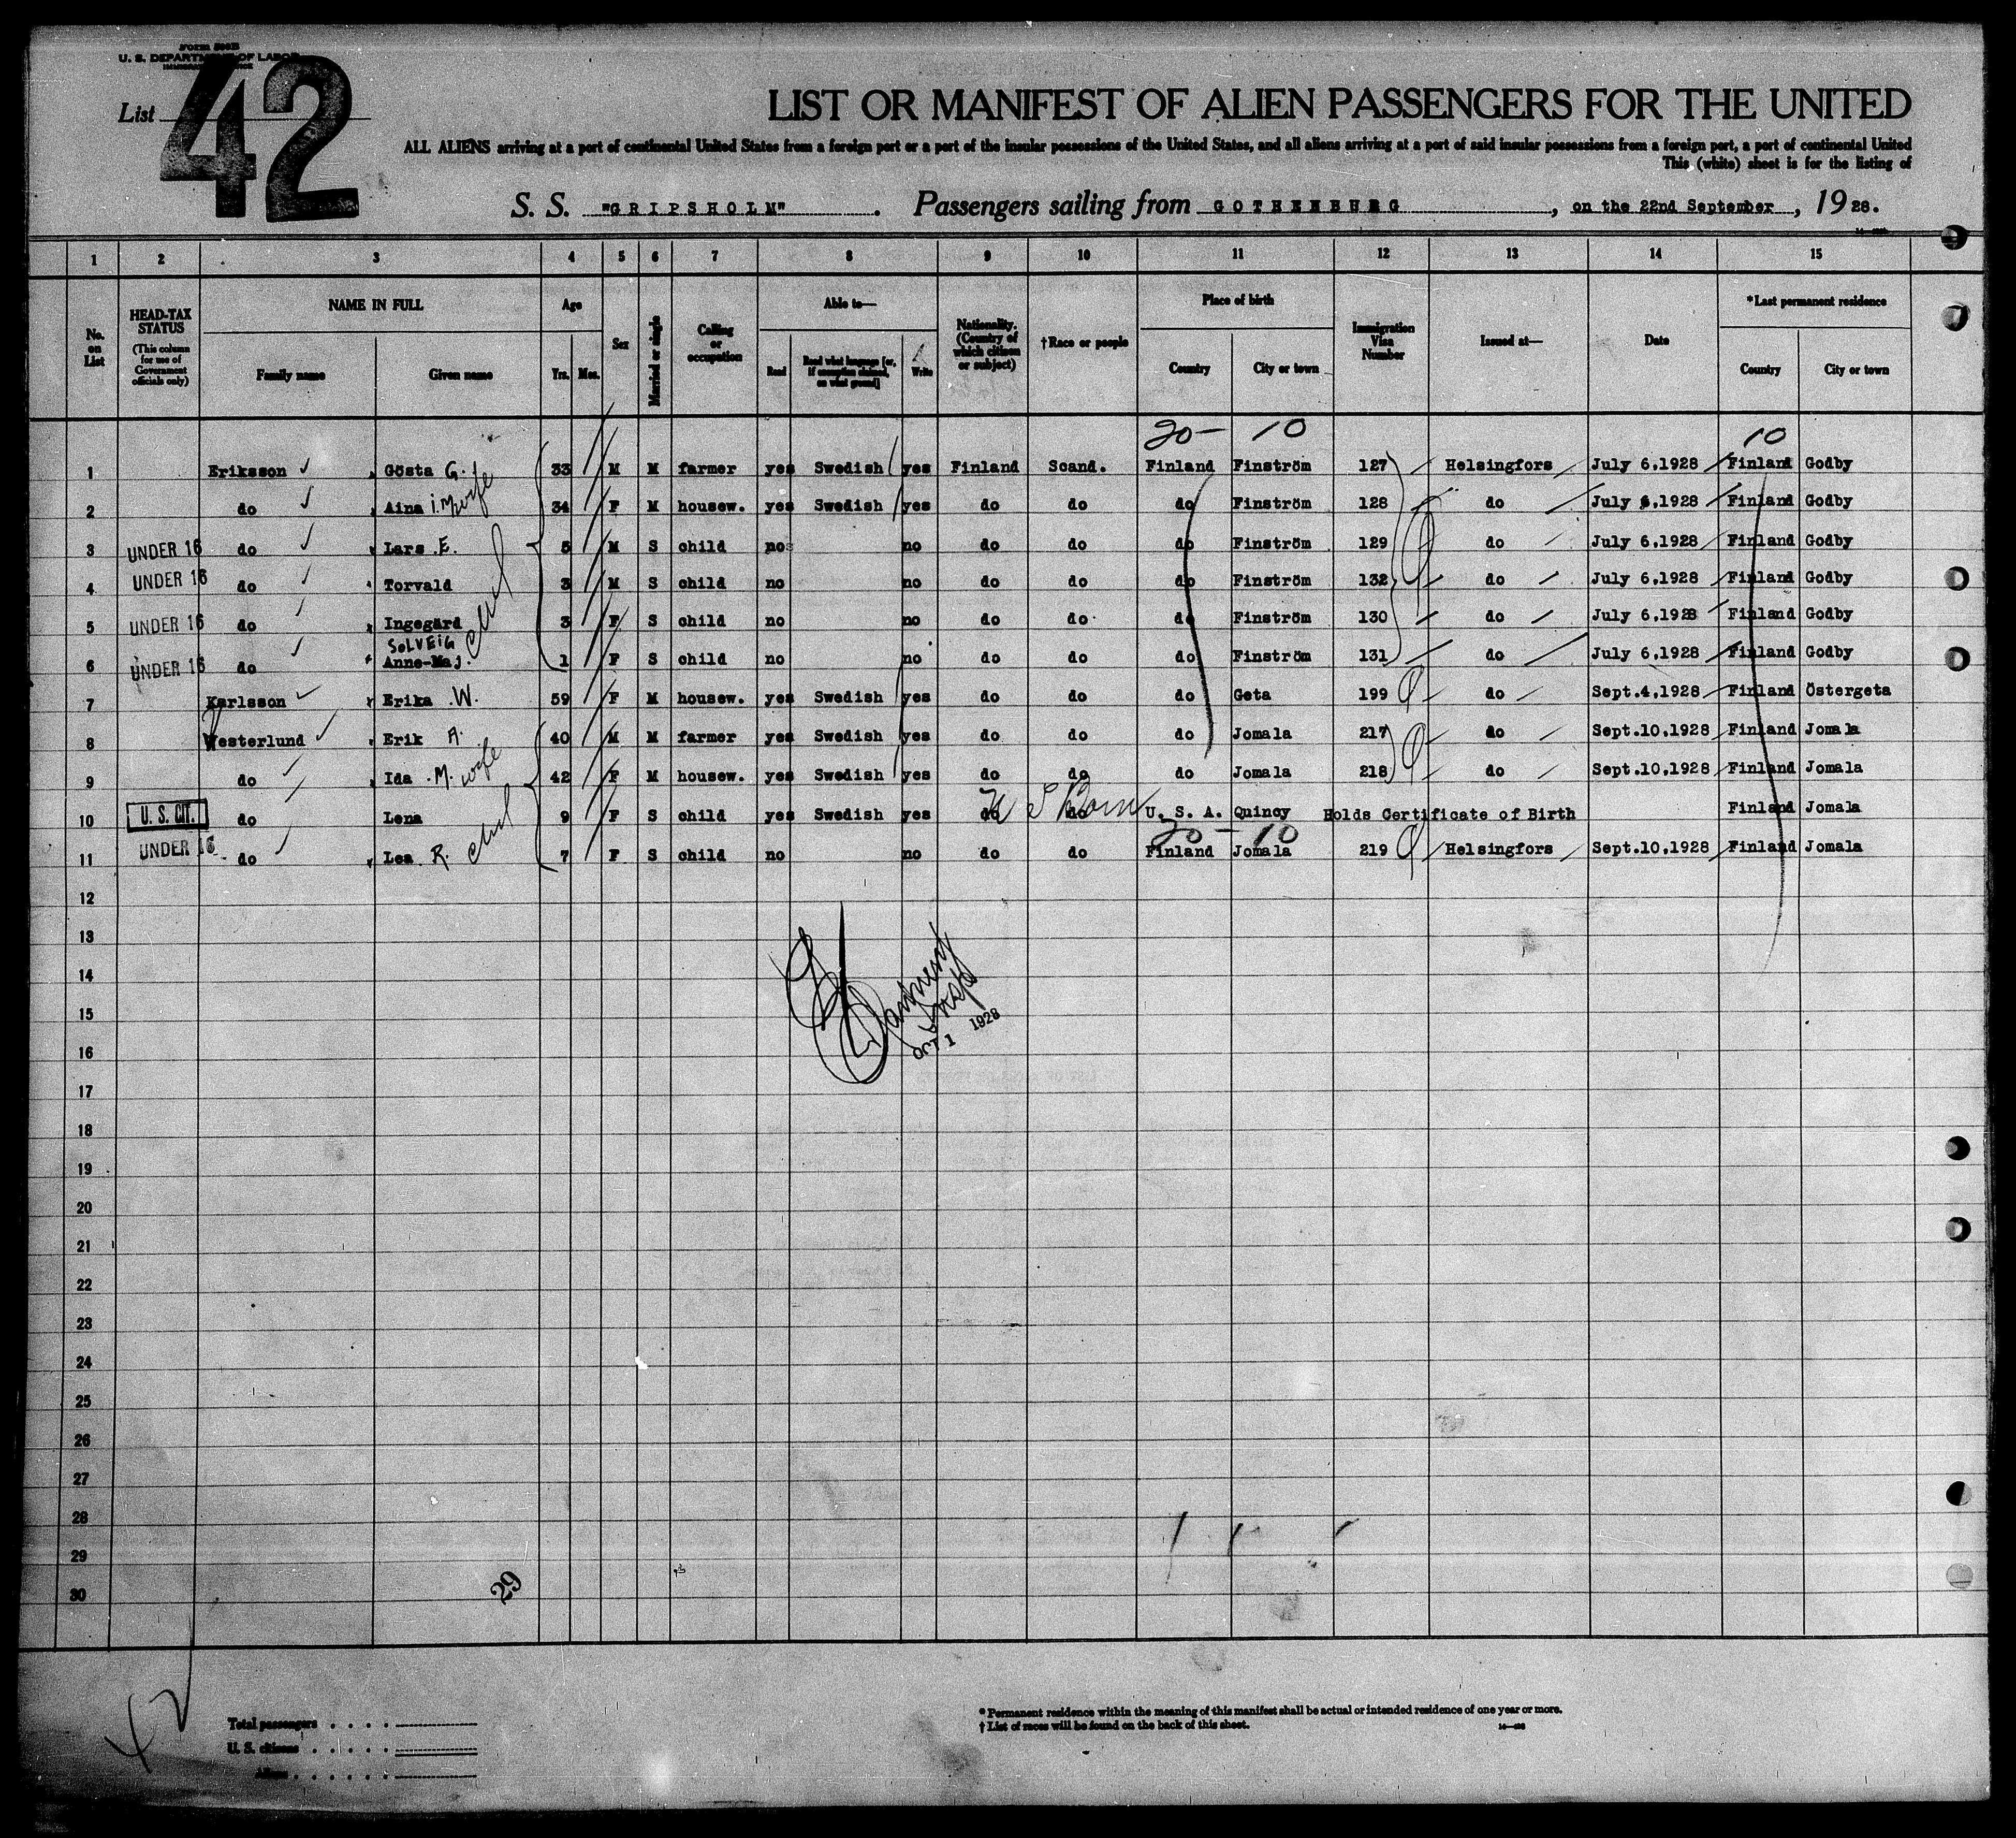 Form 500B
U. S. DEPARTMENT OF LABOR
List 42
LIST OR MANIFEST OF ALIEN PASSENGERS FOR THE UNITED
ALL ALIENS arriving at a port of continental United States from a foreign port or a port of the insular possessions of the United States, and all aliens arriving at a port of said insular possessions from a foreign port, a port of continental United
This (white) sheet is for the listing of
S. S. "GRIPSHOLM". Passengers sailing from GOTHENBURG, on the 22nd September, 1928.
1 2 3 4 5 6 7 8 9 10 11 12 13 14 15
No. on List
HEAD-TAX STATUS (This column for use of Government officials only)
NAME IN FULL Family name Given name
Age Yrs. Mos.
Sex
Married or single
Calling or occupation
Able to— Read Read what language [or, if exemption claimed, on what ground] Write
Nationality. (Country of which citizen or subject)
†Race or people
Place of birth Country City or town
Immigration Visa Number
Issued at—
Date
*Last permanent residence Country City or town
20- 10 10
1 Eriksson Gösta G. 33 M M farmer yes Swedish yes Finland Scand. Finland Finström 127 Helsingfors July 6,1928 Finland Godby
2 do Aina I.M wife 34 F M housew. yes Swedish yes do do do Finström 128 do July 6,1928 Finland Godby
3 UNDER 16 do Lars E. 5 M S child no no do do do Finström 129 do July 6,1928 Finland Godby
4 UNDER 16 do Torvald 3 M S child no no do do do Finström 132 do July 6,1928 Finland Godby
5 UNDER 16 do Ingegärd 3 F S child no no do do do Finström 130 do July 6,1928 Finland Godby
SOLVEIG
6 UNDER 16 do Anne-Maj. 1 F S child no no do do do Finström 131 do July 6,1928 Finland Godby
7 Karlsson Erika W. 59 F M housew. yes Swedish yes do do do Geta 199 do Sept.4,1928 Finland Östergeta
8 Westerlund Erik A. 40 M M farmer yes Swedish yes do do do Jomala 217 do Sept.10,1928 Finland Jomala
9 do Ida M. wife 42 F M housew. yes Swedish yes do do do Jomala 218 do Sept.10,1928 Finland Jomala
10 U. S. CIT. do Lena 9 F S child yes Swedish yes do do U S Born U. S. A. Quincy Holds Certificate of Birth Finland Jomala
20 - 10
11 UNDER 16 do Lea R. 7 F S child no no do do Finland Jomala 219 Helsingfors Sept.10,1928 Finland Jomala
12
13
14
15
OCT 1 1928
16
17
18
19
20
21
22
23
24
25
26
27
28
29
30
29
42
Total passengers
U. S. citizens
Aliens
* Permanent residence within the meaning of this manifest shall be actual or intended residence of one year or more.
† List of races will be found on the back of this sheet.